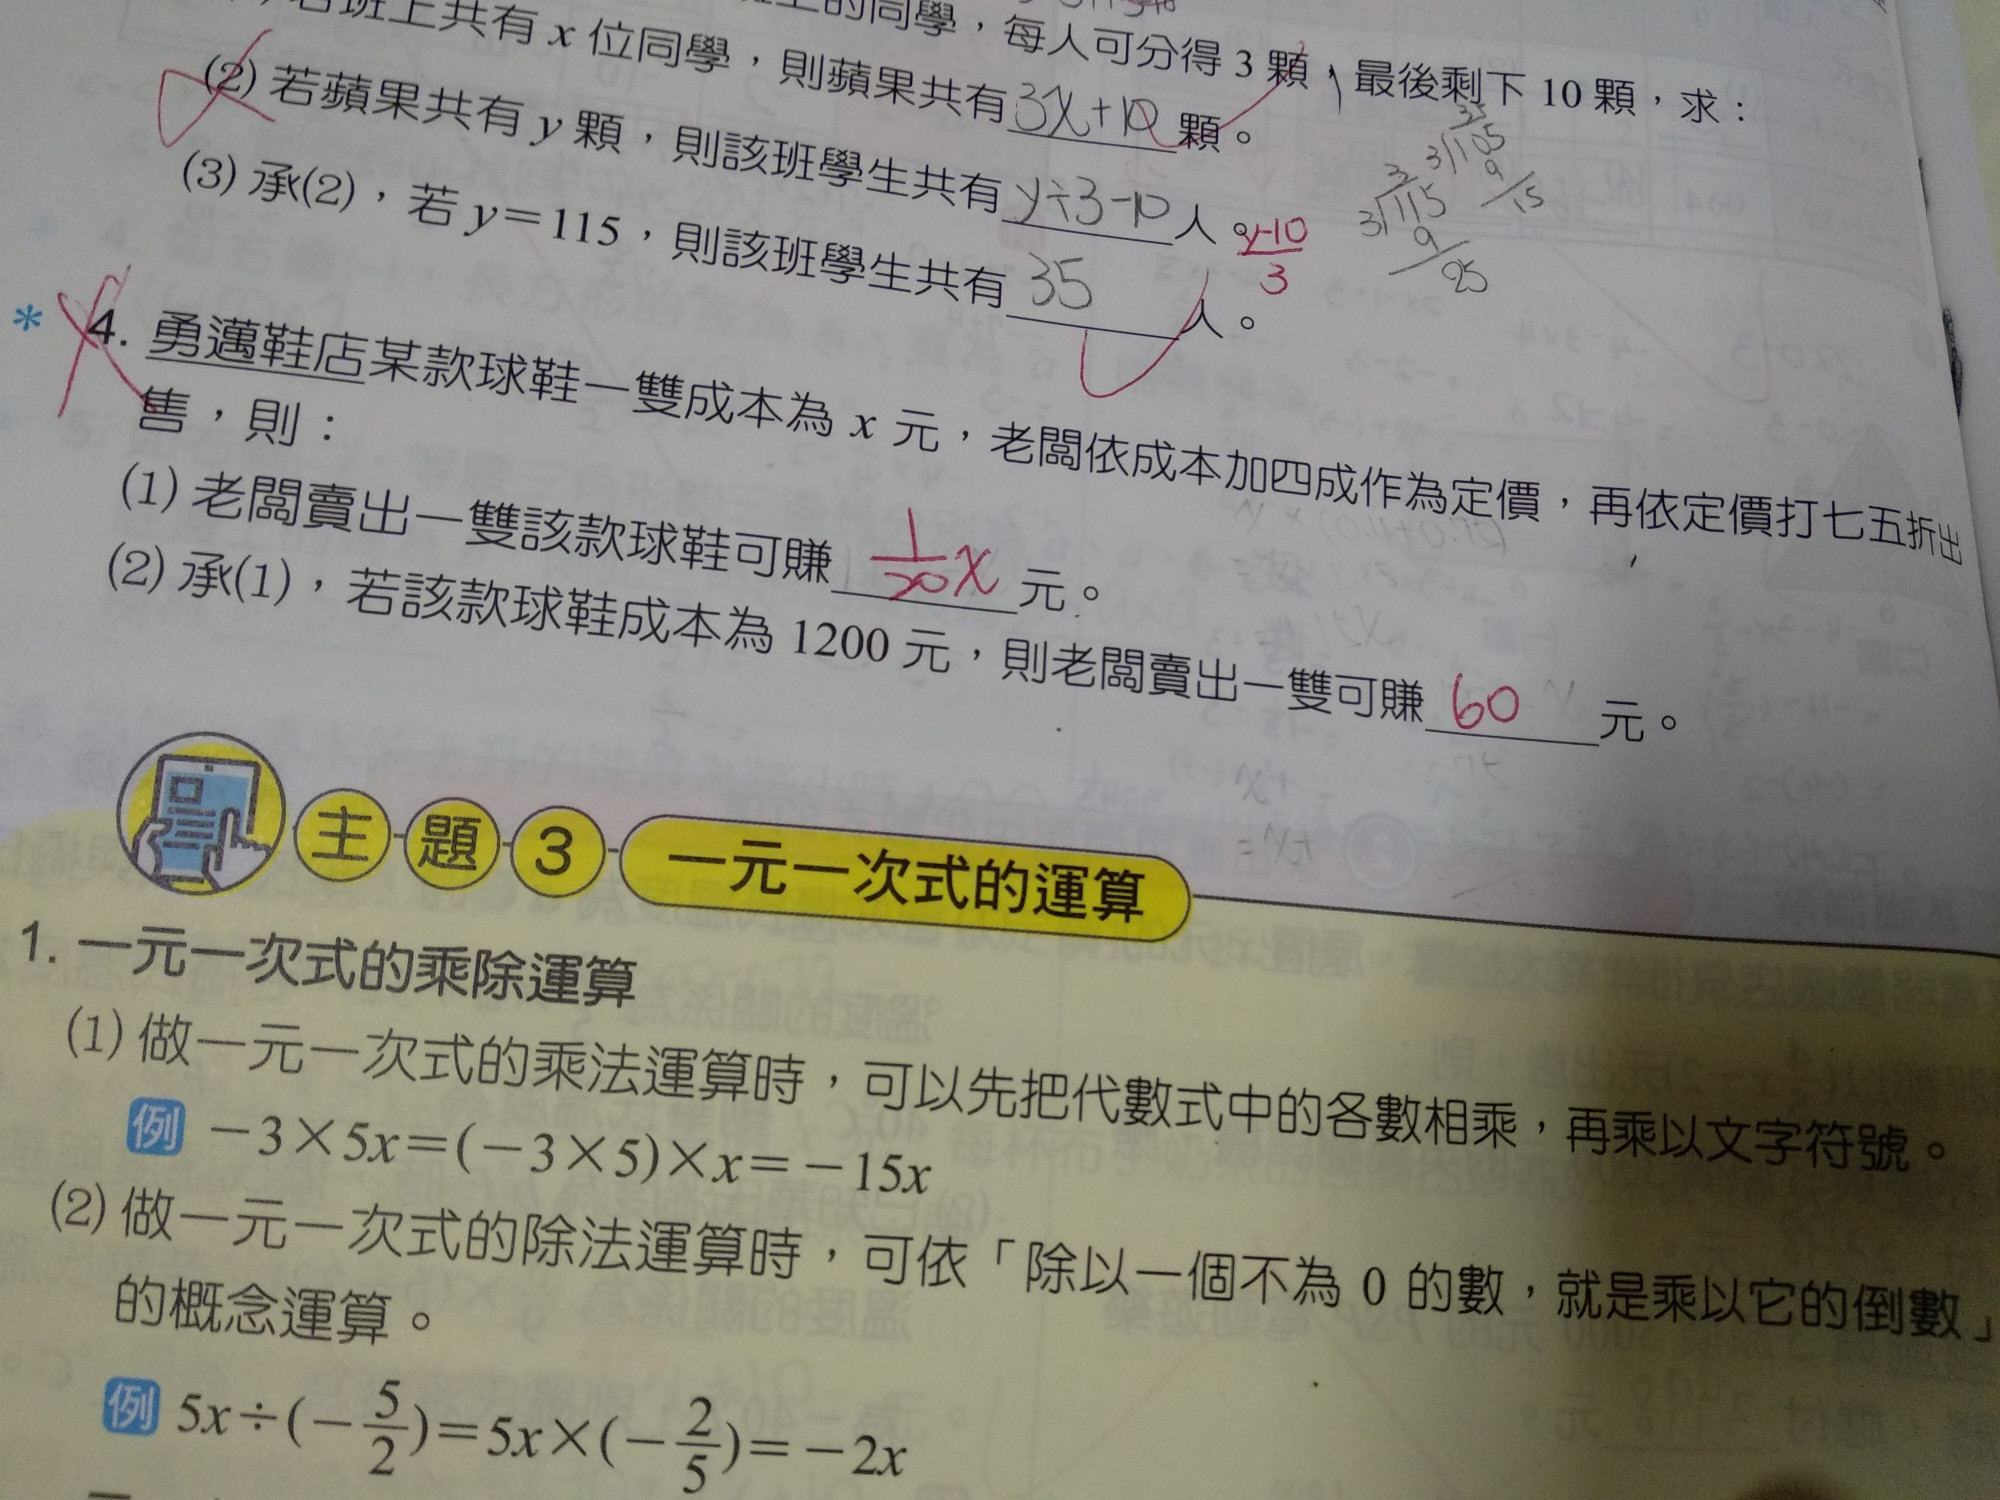 班上的同學，每人可分得 3 顆，最後剩下 10 顆，求：
若班上共有 x 位同學，則蘋果共有 3x+10 顆。
(2) 若蘋果共有 y 顆，則該班學生共有 y÷3-10 人。 y-10/3
(3) 承(2)，若 y＝115，則該班學生共有 35 人。
35
3)105
9
15
3
3)115
9
25
* 4. 勇邁鞋店某款球鞋一雙成本為 x 元，老闆依成本加四成作為定價，再依定價打七五折出
售，則：
(1) 老闆賣出一雙該款球鞋可賺 1/20 x 元。
(2) 承(1)，若該款球鞋成本為 1200 元，則老闆賣出一雙可賺 60 元。
主題3 一元一次式的運算
1. 一元一次式的乘除運算
(1) 做一元一次式的乘法運算時，可以先把代數式中的各數相乘，再乘以文字符號。
例 －3×5x＝(－3×5)×x＝－15x
(2) 做一元一次式的除法運算時，可依「除以一個不為 0 的數，就是乘以它的倒數」
的概念運算。
例 5x÷(－5/2)＝5x×(－2/5)＝－2x